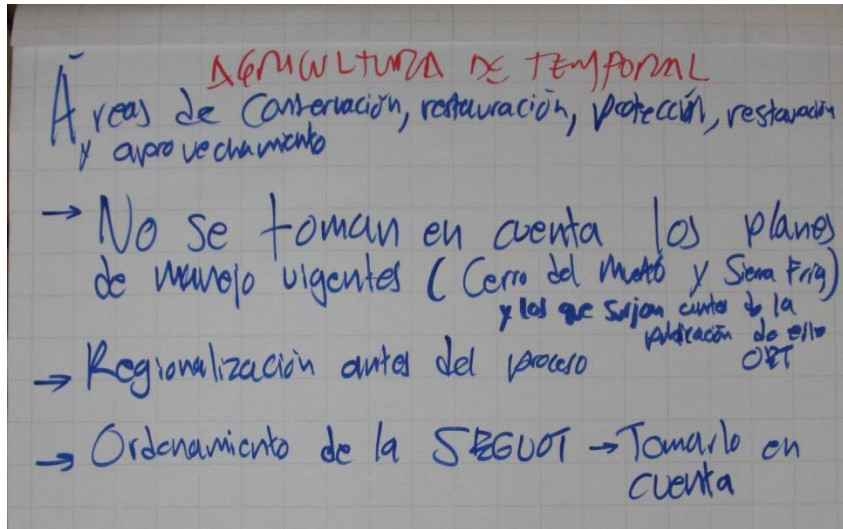 AGRICULTURA DE TEMPORAL
Áreas de Conservación, restauración, protección, restauración
y aprovechamiento
→ No se toman en cuenta los planes
de manejo vigentes (Cerro del Muerto y Sierra Fría)
y los que surjan antes de la
publicación de este
OET
→ Regionalización antes del proceso
→ Ordenamiento de la SEGUOT → Tomarlo en
cuenta